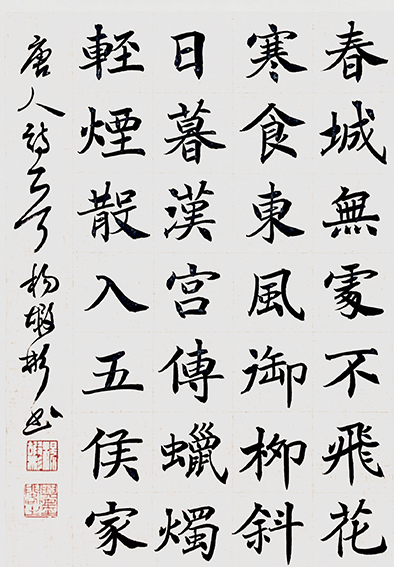 春城無處不飛花
寒食東風御柳斜
日暮漢宮傳蠟燭
輕煙散入五侯家
唐人詩一首 楊 彬書